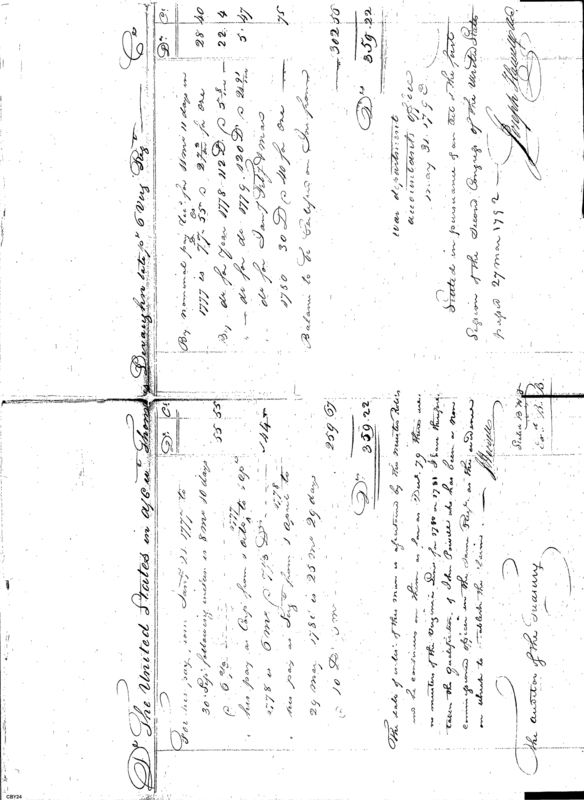 Dr The United States in a/c w Thomas Devaughn late pr 6 Virg Reg Cr
Dr Cr
For his pay, from Jany 11 1777 to
30 Sep. following inclusive is 8 mo 18 days
@ 6 2/3 55 55
his pay as Corp from 1 Octo 1777 to 1 Ap
1778 is 6 mo @ 7 1/3 Drs 44
his pay as Sergt from 1 April 1778 to
29 may 1780 is 25 mo 29 days
@ 10 D pr m 259 67
Drs 359.22
The date of enlist. of this man is ascertained by the Muster Rolls
and he continues on them as low as Decr 79 There are
no musters of the Virginia Line for 1780 or 1781 I have therefore
taken the Qualification of John Powell who has been a non
commissioned officer in the same Regt as the evidence
on which to establish the Claim.
The auditor of the Treasury
Dr Cr
By nominal pay for 8 mo 11 days in
1777 is for one 28 40
By do for Year 1778 112 D 22.4
do for do 1779 120 D 5.47
do for Jany Feby & Mar
1780 30 D @ 40 for one 75
Balance to be Certified on Int. from
302 55
Drs 359.22
War department
accountants office
may 31 1792
Stated in pursuance of an act of the first
Session of the Second Congress of the United States
passed 27 Mar 1792
Joseph Howell
CBY24